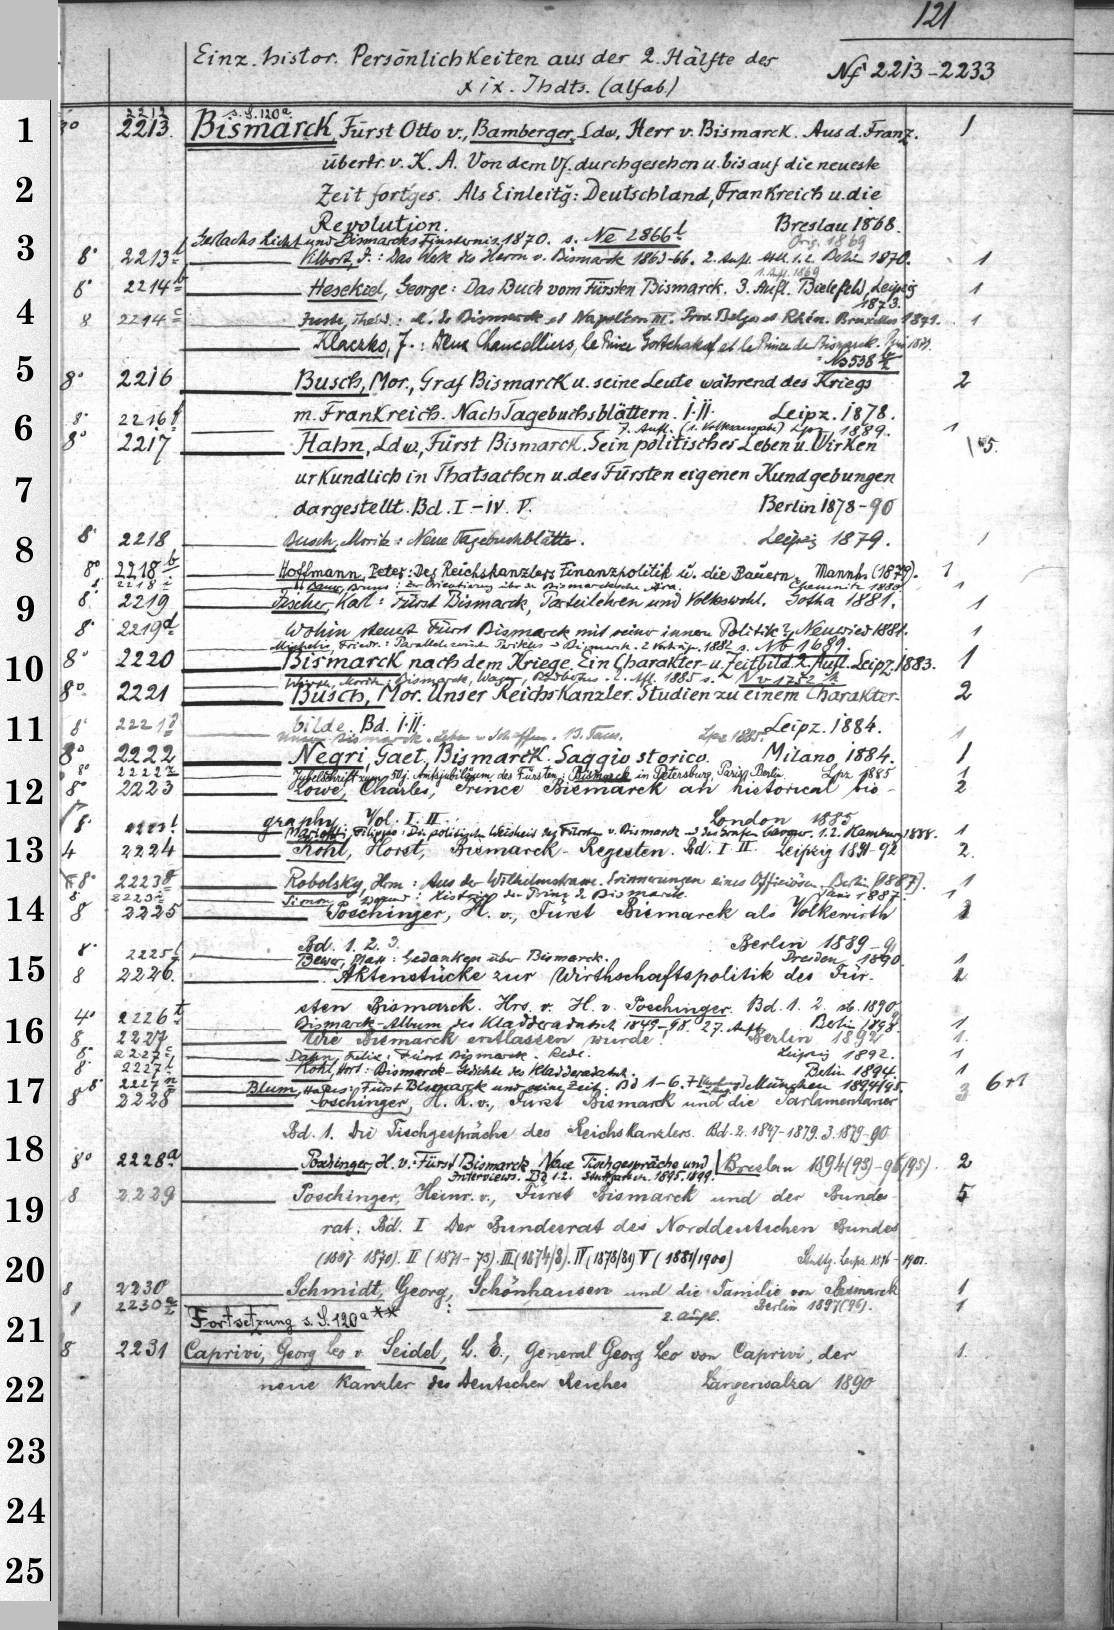 121
Einz. histor. Persönlichkeiten aus der 2. Hälfte des
XIX. Jhdts. (alfab.)
Nf 2213-2233
2212
s. S. 120a.
1 8° 2213. Bismarck, Fürst Otto v., Bamberger, Ldw. Herr v. Bismarck. Aus d. Franz. 1
übertr. v. K. A. Von dem Vf. durchgesehen u. bis auf die neueste
2 Zeit fortges. Als Einleitg: Deutschland, Frankreich u. die
Revolution. Breslau 1868.
Gerlachs Licht und Bismarcks Finsternis 1870. s. Ne 2866 t
Orig. 1869
3 8° 2213 t Vilbort, J.: Das Werk des Herrn v. Bismarck 1863-66. 2. Aufl. Abt. 1.2 Berlin 1870. 1
1. Aufl. 1869
8° 2214 b Hesekiel, George: Das Buch vom Fürsten Bismarck. 3. Aufl. Bielefeld, Leipzig 1
1873.
4 8 2214 c Juste, Théod.: M. de Bismarck et Napoléon III. Prov. Belges et Rhén. Bruxelles 1871. 1
Klaczko, J.: Deux Chanceliers, le Prince Gortschakof et le Prince de Bismarck.
No 538
5 8° 2216 Busch, Mor., Graf Bismarck u. seine Leute während des Kriegs 2
m. Frankreich. Nach Tagebuchsblättern. I. II. Leipz. 1878.
6 8° 2216 f 7. Aufl. (1. Volksausgabe) Lpz. 1889. 1
8° 2217 Hahn, Ldw., Fürst Bismarck. Sein politisches Leben u. Wirken 5.
7 urkundlich in Thatsachen u. des Fürsten eigenen Kundgebungen
dargestellt. Bd. I-IV. V. Berlin 1878-90
8 8° 2218 Busch, Moritz: Neue Tagebuchblätter. Leipzig 1879. 1
8° 2218 b Hoffmann, Peter: Des Reichskanzlers Finanzpolitik u. die Bauern. Mannh. (1879). 1
2218 i Bauer, Bruno: Zur Orientierung über die Bismarck'sche Ära. Chemnitz 1880. 1
9 8° 2219 Fischer, Karl: Fürst Bismarck, Parteilehren und Volkswohl. Gotha 1881. 1
8° 2219 d Wohin steuert Fürst Bismarck mit seiner innern Politik? Neuwied 1881. 1
Michelis, Friedr.: Parallele zwisch. Perikles u. Bismarck. 2 Vorträge. 1882 s. Nb 1689.
10 8° 2220 Bismarck nach dem Kriege. Ein Charakter- u. Zeitbild. 2. Aufl. Leipz. 1883. 1
Wirth, Moritz: Bismarck, Wagner, Rodbertus. 2. Afl. 1885 s. Nv 1752
8° 2221 Busch, Mor. Unser Reichskanzler. Studien zu einem Charakter- 2
11 bilde. Bd. I. II. Leipz. 1884.
8° 2221 Unser Bismarck. Leben u. Schaffen. Lpz. 1885. 1
8° 2222 Negri, Gaet., Bismarck. Saggio storico. Milano, 1884. 1
8° 2222 Jubelschrift zum 50j. Amtsjubiläum des Fürsten Bismarck in Petersburg, Paris, Berlin. Lpz. 1885 1
12 8° 2223 Lowe, Charles, Prince Bismarck an historical bio- 2
graphy. Vol. I. II. London 1885
8° 2223 t Mariotti, Filippo: Die politische Weisheit des Fürsten v. Bismarck u. des Grafen Cavour. 1.2. Hamburg 1888. 1
13 4 2224 Kohl, Horst, Bismarck-Regesten. Bd. I. II. Leipzig 1891-92 2.
8° 2223 g Robolsky, Hrm: Aus der Wilhelmstrasse. Erinnerungen eines Offiziösen. Berlin (1887). 1
2223 i Simon, Édouard: Histoire du Prince de Bismarck. Paris 1887. 1
14 8 2225 Poschinger, H. v., Fürst Bismarck als Volkswirth
Bd. 1. 2. 3. Berlin 1889-91
8° 2225 t Bewer, Max: Gedanken über Bismarck. Dresden 1890. 1
15 8 2226. Aktenstücke zur Wirthschaftspolitik des Für- 2
sten Bismarck. Hrs. v. H. v. Poschinger. Bd. 1. 2. ib. 1890
16 4° 2226 t Bismarck-Album des Kladderadatsch 1849-98. 27. Aufl. Berlin 1898. 1
8 2227 Wie Bismarck entlassen wurde! Berlin 1892 1.
8° 2227 c Dahn, Felix: Fürst Bismarck. Rede. Leipzig 1892. 1
8° 2227 Kohl, Horst: Bismarck-Gedichte des Kladderadatsch. Berlin 1894. 1
17 8° 2227 n Blum, Hans: Fürst Bismarck und seine Zeit. Bd 1-6. + München 1894/95. 6+1
8° 2228 Poschinger, H. R. v., Fürst Bismarck und die Parlamentarier 3
Bd. 1. Die Tischgespräche des Reichskanzlers. Bd. 2. 1847-1879. 3. 1879-90
18 8° 2228 a Poschinger, H. v.: Fürst Bismarck. Neue Tischgespräche und | Breslau 1894(93)-96(95). 2
Interviews. Bd 1.2. Stuttgart u. 1895.1899.
8 2229 Poschinger, Heinr. v., Fürst Bismarck und der Bundes- 5
19 rat. Bd. I Der Bundesrat des Norddeutschen Bundes
20 (1867-1870). II (1871-73). III (1874/8). IV (1878/81) V (1881/1900) Stuttg. Leipz. 1896-1901.
8 2230 Schmidt, Georg, Schönhausen und die Familie von Bismarck 1
8 2230 a 2. Aufl. Berlin 1897(96). 1
21 Fortsetzung s. S. 120a**
8 2231 Caprivi, Georg Leo v. Seidel, L. E., General Georg Leo von Caprivi, der 1.
22 neue Kanzler des Deutschen Reiches Langensalza 1890
23
24
25